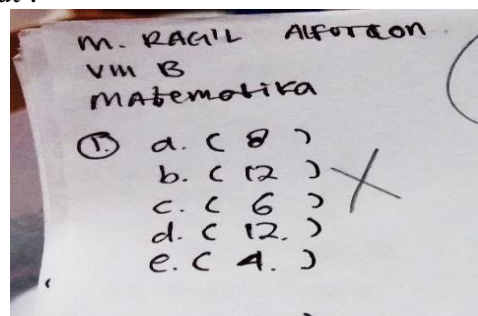 M. RAGIL ALFURQON
VIII B
MAtematika
1. a. ( 8 )
b. ( 12 )
c. ( 6 )
d. ( 12. )
e. ( 4. )